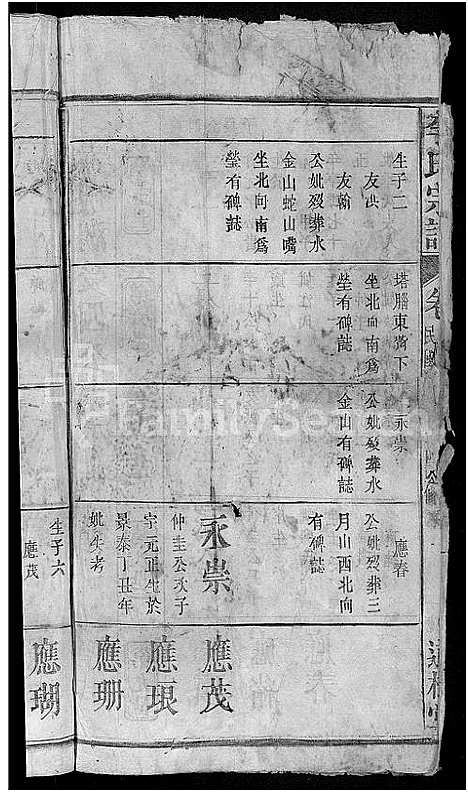 李氏宗譜
卷
民國
生子二
友
友翰
公妣歿葬水
金山蛇山嘴
坐北向南爲
塋有碑誌
塔腦東灣下
坐北向南爲
塋有碑誌
永崇
公妣歿葬水
金山有碑誌
應春
公妣歿葬三
月山西北向
有碑誌
永崇
仲圭公次子
字元正生於
景泰丁丑年
妣失考
生子六
應茂
應茂
應琅
應珊
應瑚
FamilySearch